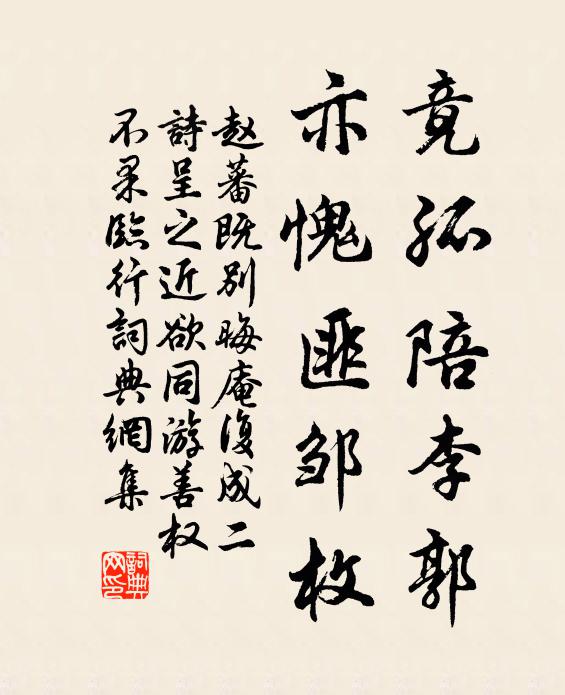 竟孤陪李郭
亦愧匪邹枚
赵蕃既别晦庵復成二
詩呈之近欲同游善权
不果臨行詞典網集
詞典网印